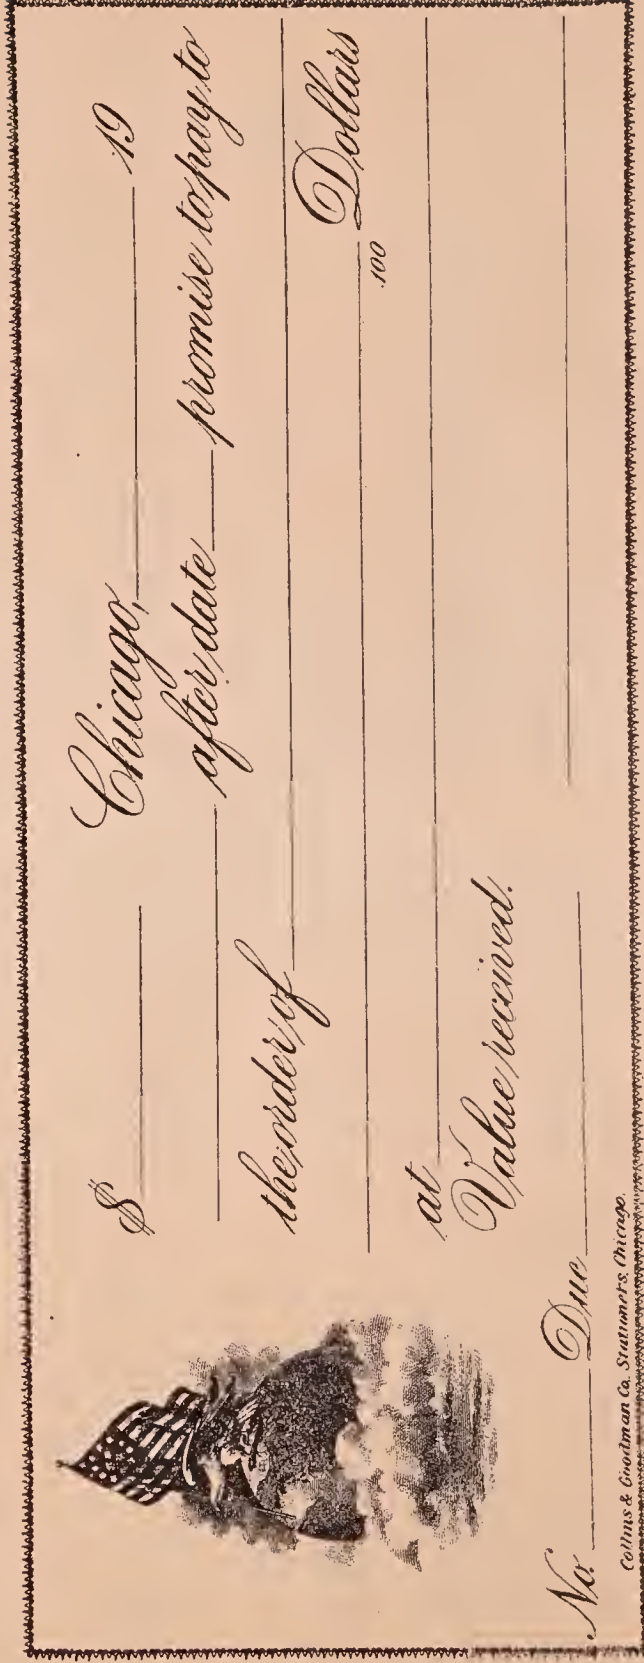 $ Chicago, 19
after date promise to pay to
the order of
Dollars
100
at
Value received.
No. Due
Collins & Goodman Co. Stationers, Chicago.